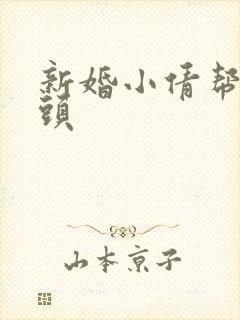 新婚小倩帮
頭
山本京子